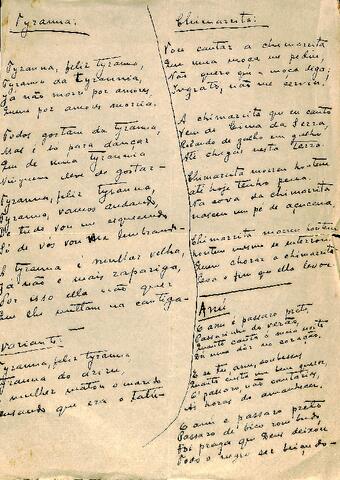 Tyranna:
Tyranna, feliz tyranna,
Tyranna da tyrannia,
Já não morro por amores,
Quem por amores morria.
Todos gostam da tyranna,
Mas é só para dançar
Que de minha tyrannia
Ninguem deve de gostar-
Tyranna, feliz tyranna,
Tyranna, vamos andando,
De tudo vou me esquecendo
Só de vos vou me lembrando-
A tyranna é mulher velha,
Já não é mais rapariga,
Por isso ella não quer
Que lhe mettam na cantiga-
Variante:
Tyranna, feliz tyranna
Tyranna do
A mulher matou o marido
Pensando que era o tatu-
Chimarrita:
Vou cantar a chimarrita
Que uma moça me pediu,
Não quero que a moça diga:
Ingrato, não me serviu.
A chimarrita que eu canto
Vem de Cima da Serra,
Pulando de galho em galho
Até chegar nesta terra.
Chimarrita morreu hontem
Até hoje tenho pena.
Na cova da chimarrita
nasceu um pé de açucena.
Chimarrita morreu hontem
hontem mesmo se enterrou.
Quem chorar a chimarrita
Leva o fim que ella levou.
Anú
O anú é passaro preto
Passarinho do verão,
Quando canta á meia noite
Dá uma dor no coração.
E se tu, anú, soubesses
Quanto custa um bem querer,
O' passaro, não cantarias,
Ás horas do amanhecer.
O anú é passaro preto
Passaro de bico rombudo,
Foi praga que Deus deixou
Todo o negro ser beiçudo-